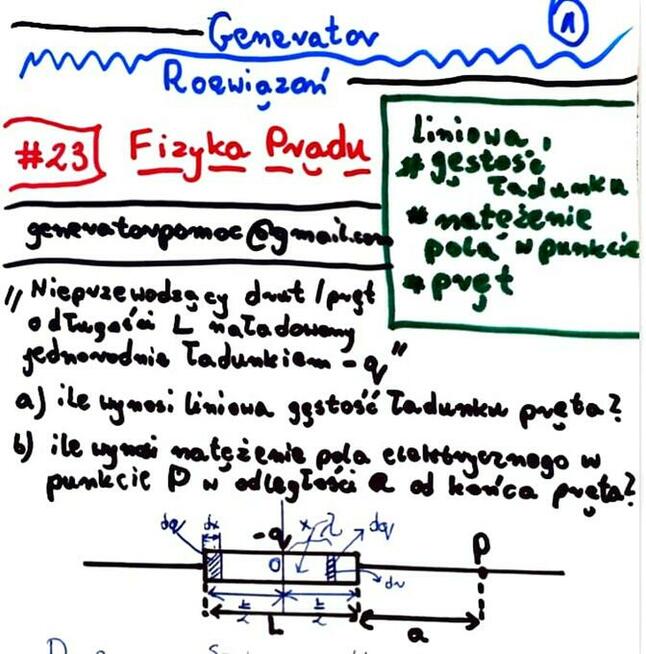 1
Generator
Rozwiązań
#23 Fizyka Prądu
generatorpomoc@gmail.com
liniowa
# gęstość
ładunku
# natężenie
pola w punkcie
# pręt
"Nieprzewodzący drut/pręt
o długości L naładowany
jednorodnie ładunkiem -q"
a) ile wynosi liniowa gęstość ładunku pręta?
b) ile wynosi natężenie pola elektrycznego w
punkcie P w odległości a od końca pręta?
dq dx -q x λ dq
P
0
dr
L/2 L/2
L a